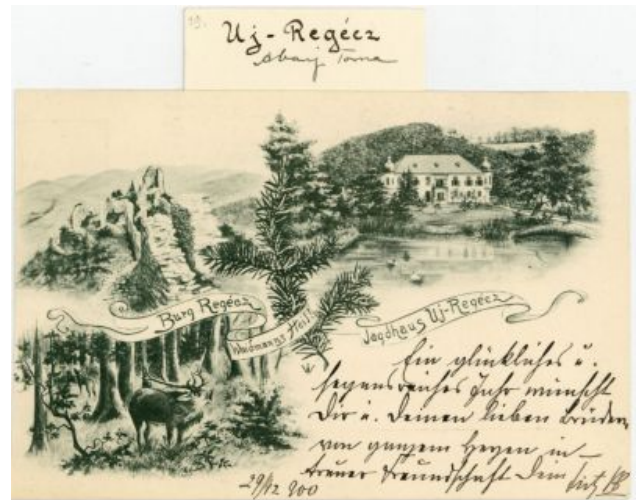 19.
Uj-Regécz
Abauj Torna
Burg Regécz
Waidmanns Heil!
Jagdhaus Uj-Regécz
Ein glückliches u.
segensreiches Jahr wünscht
Dir u. Deinen lieben Brüdern
von ganzem Herzen in
treuer Freundschaft Dein Fritz
29/12 900